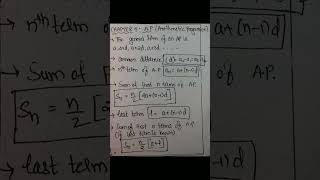 CHAPTER 5 - A.P (Arithmetic Progression)
→ The general term of an AP is
a, a+d, a+2d, a+3d, . . . .
→ common difference d = a₂-a₁
→ nᵗʰ term of A.P. aₙ = a+(n-1)d
→ Sum of first n terms of A.P.
Sₙ = n/2 [2a+(n-1)d]
→ last term l = a+(n-1)d
→ Sum of first n terms of A.P.
(if last term is known)
Sₙ = n/2 [a+l]
→ nᵗʰ term o
→ Sum of
Sₙ
→ last term
n-1)d
of A.P.
)d